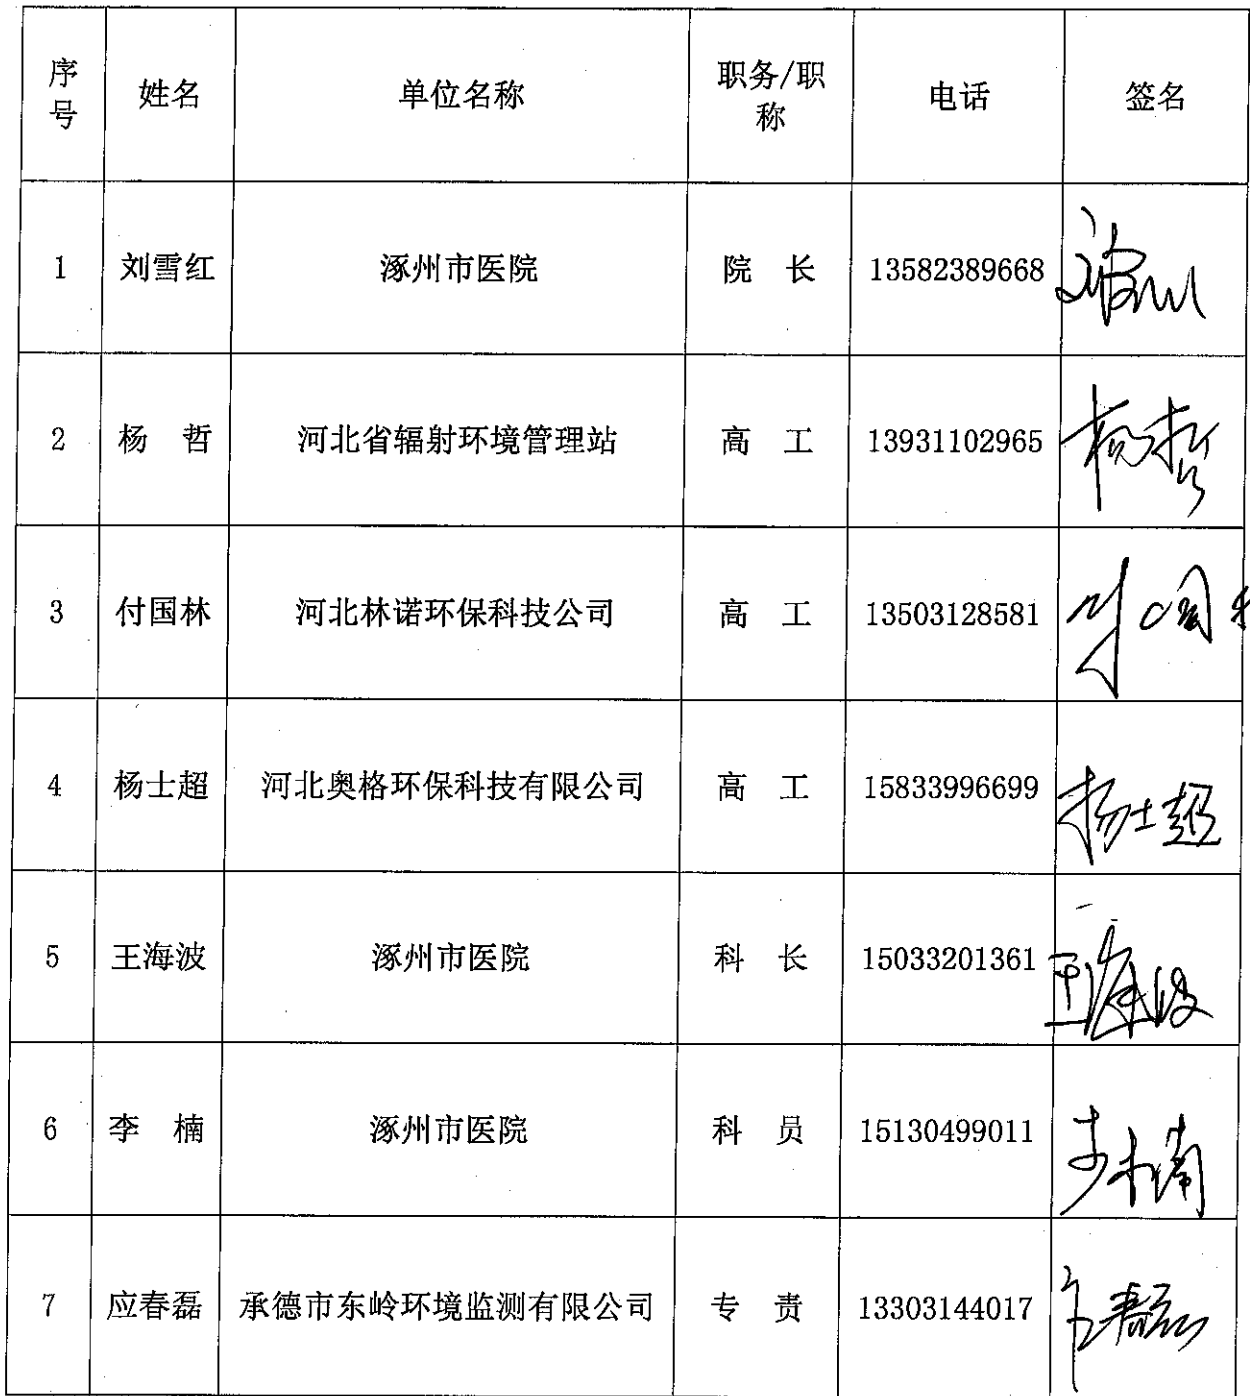 序号 姓名 单位名称 职务/职称 电话 签名
1 刘雪红 涿州市医院 院 长 13582389668
2 杨 哲 河北省辐射环境管理站 高 工 13931102965 杨哲
3 付国林 河北林诺环保科技公司 高 工 13503128581
4 杨士超 河北奥格环保科技有限公司 高 工 15833996699 杨士超
5 王海波 涿州市医院 科 长 15033201361 王海波
6 李 楠 涿州市医院 科 员 15130499011 李楠
7 应春磊 承德市东岭环境监测有限公司 专 责 13303144017 应春磊